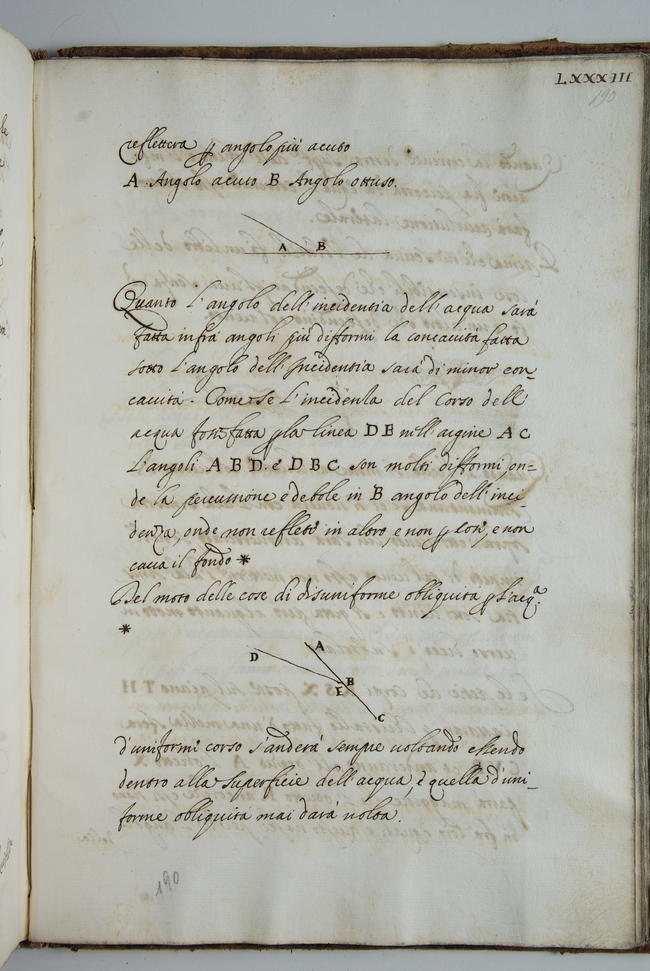 LXXXIII
190
reflettera p angolo più acuto
A. Angolo acuto B Angolo ottuso.
A B
Quanto l'angolo dell'incidentia dell'acqua sarà
fatta infra angoli più difformi la concavità fatta
sotto l'angolo dell'Incidentia sarà di minor con-
cavità. Come se l'incidentia del Corso dell'
acqua fosse fatta p la linea D B nell'argine A C
l'angoli A B D. e D B C son molti difformi, on=
de la percussione è debole in B angolo dell'inci-
denza, onde non reflette in altro, e non p cosi, e non
cava il fondo *
Del moto delle cose di disuniforme obliquità p l'acq.a
*
D A B E C
d'uniformi corso s'anderà sempre voltando essendo
dentro alla superficie dell'acqua, e quella d'uni-
forme obliquità mai darà volta.
190